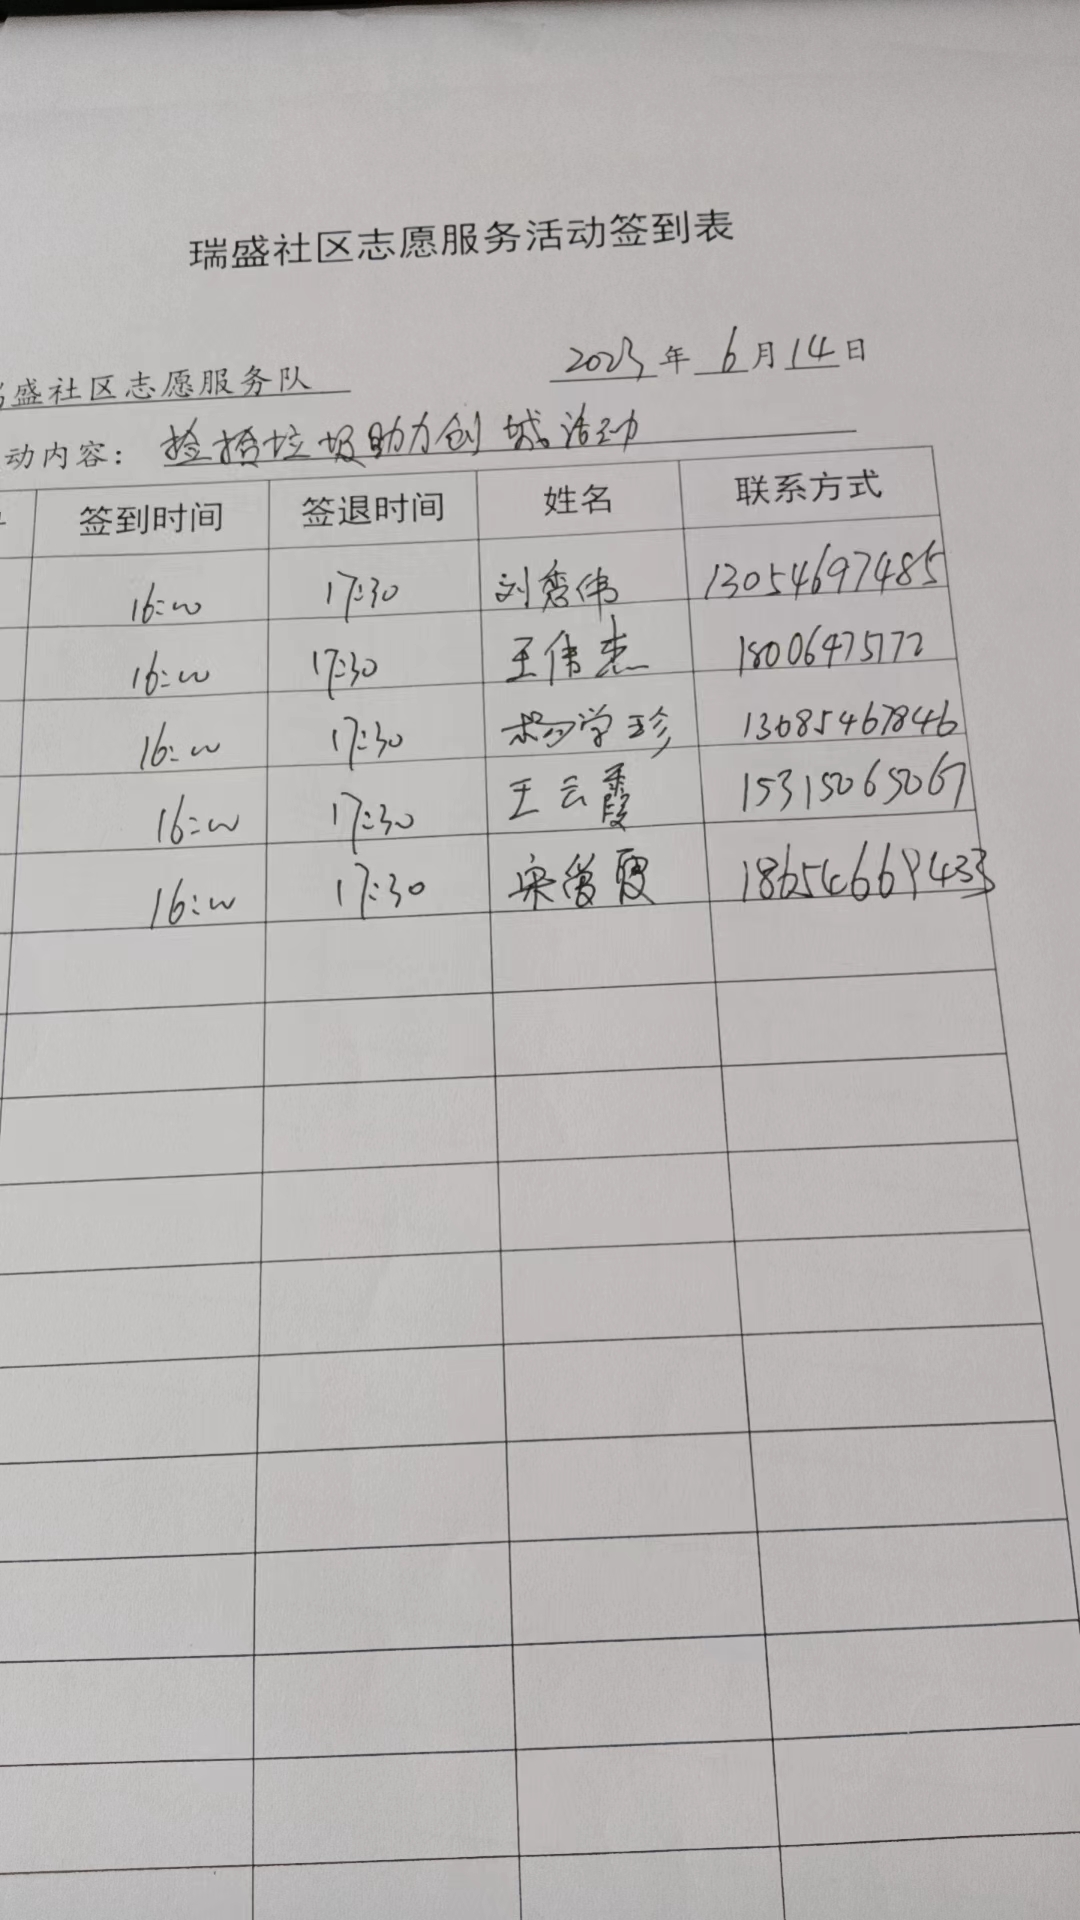 瑞盛社区志愿服务活动签到表
盛社区志愿服务队 2023年 6月14日
动内容： 捡拾垃圾助力创城活动
签到时间 签退时间 姓名 联系方式
16:00 17:30 刘秀伟 13054697485
16:00 17:30 王伟杰 18006475772
16:00 17:30 杨学珍 13685467846
16:00 17:30 王云霞 15315065067
16:00 17:30 宋爱霞 18654669433